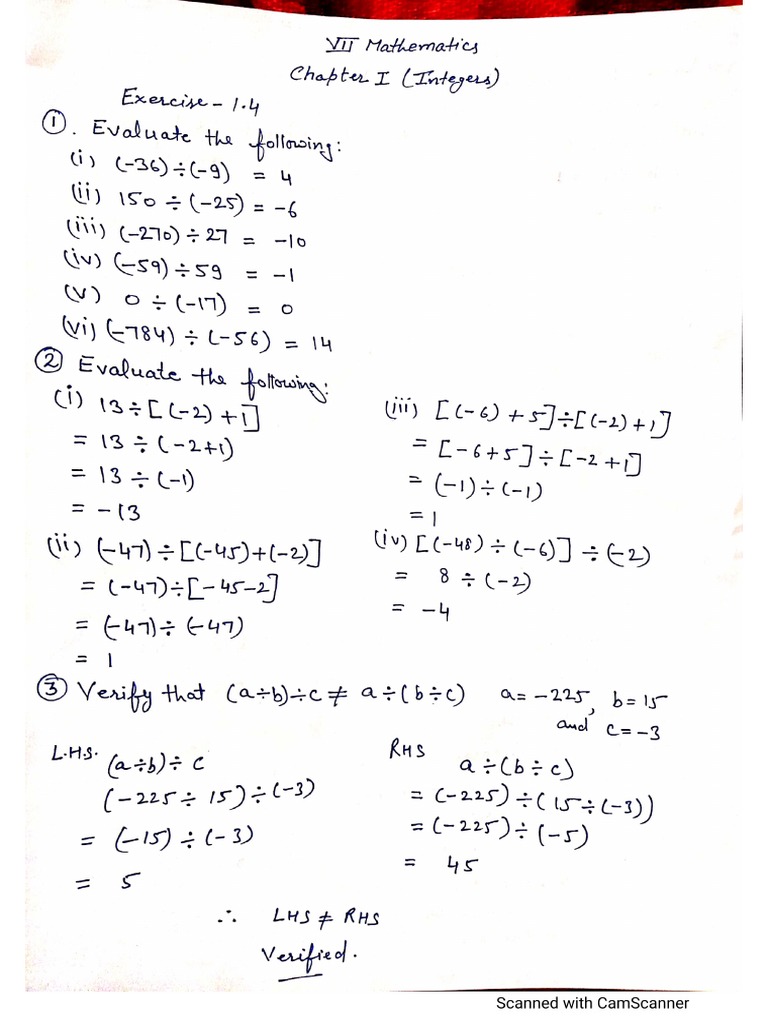 VII Mathematics
Chapter I (Integers)
Exercise - 1.4
①. Evaluate the following:
(i) (-36) ÷ (-9) = 4
(ii) 150 ÷ (-25) = -6
(iii) (-270) ÷ 27 = -10
(iv) (-59) ÷ 59 = -1
(v) 0 ÷ (-17) = 0
(vi) (-784) ÷ (-56) = 14
② Evaluate the following:
(i) 13 ÷ [(-2) + 1]
= 13 ÷ (-2+1)
= 13 ÷ (-1)
= -13
(ii) (-47) ÷ [(-45)+(-2)]
= (-47) ÷ [-45-2]
= (-47) ÷ (-47)
= 1
(iii) [(-6) + 5] ÷ [(-2) + 1]
= [-6+5] ÷ [-2+1]
= (-1) ÷ (-1)
= 1
(iv) [(-48) ÷ (-6)] ÷ (-2)
= 8 ÷ (-2)
= -4
③ Verify that (a÷b)÷c ≠ a÷(b÷c) a = -225, b = 15
and c = -3
L.H.S. (a÷b) ÷ c
(-225 ÷ 15) ÷ (-3)
= (-15) ÷ (-3)
= 5
RHS
a ÷ (b ÷ c)
= (-225) ÷ (15 ÷ (-3))
= (-225) ÷ (-5)
= 45
∴ LHS ≠ RHS
Verified.
Scanned with CamScanner